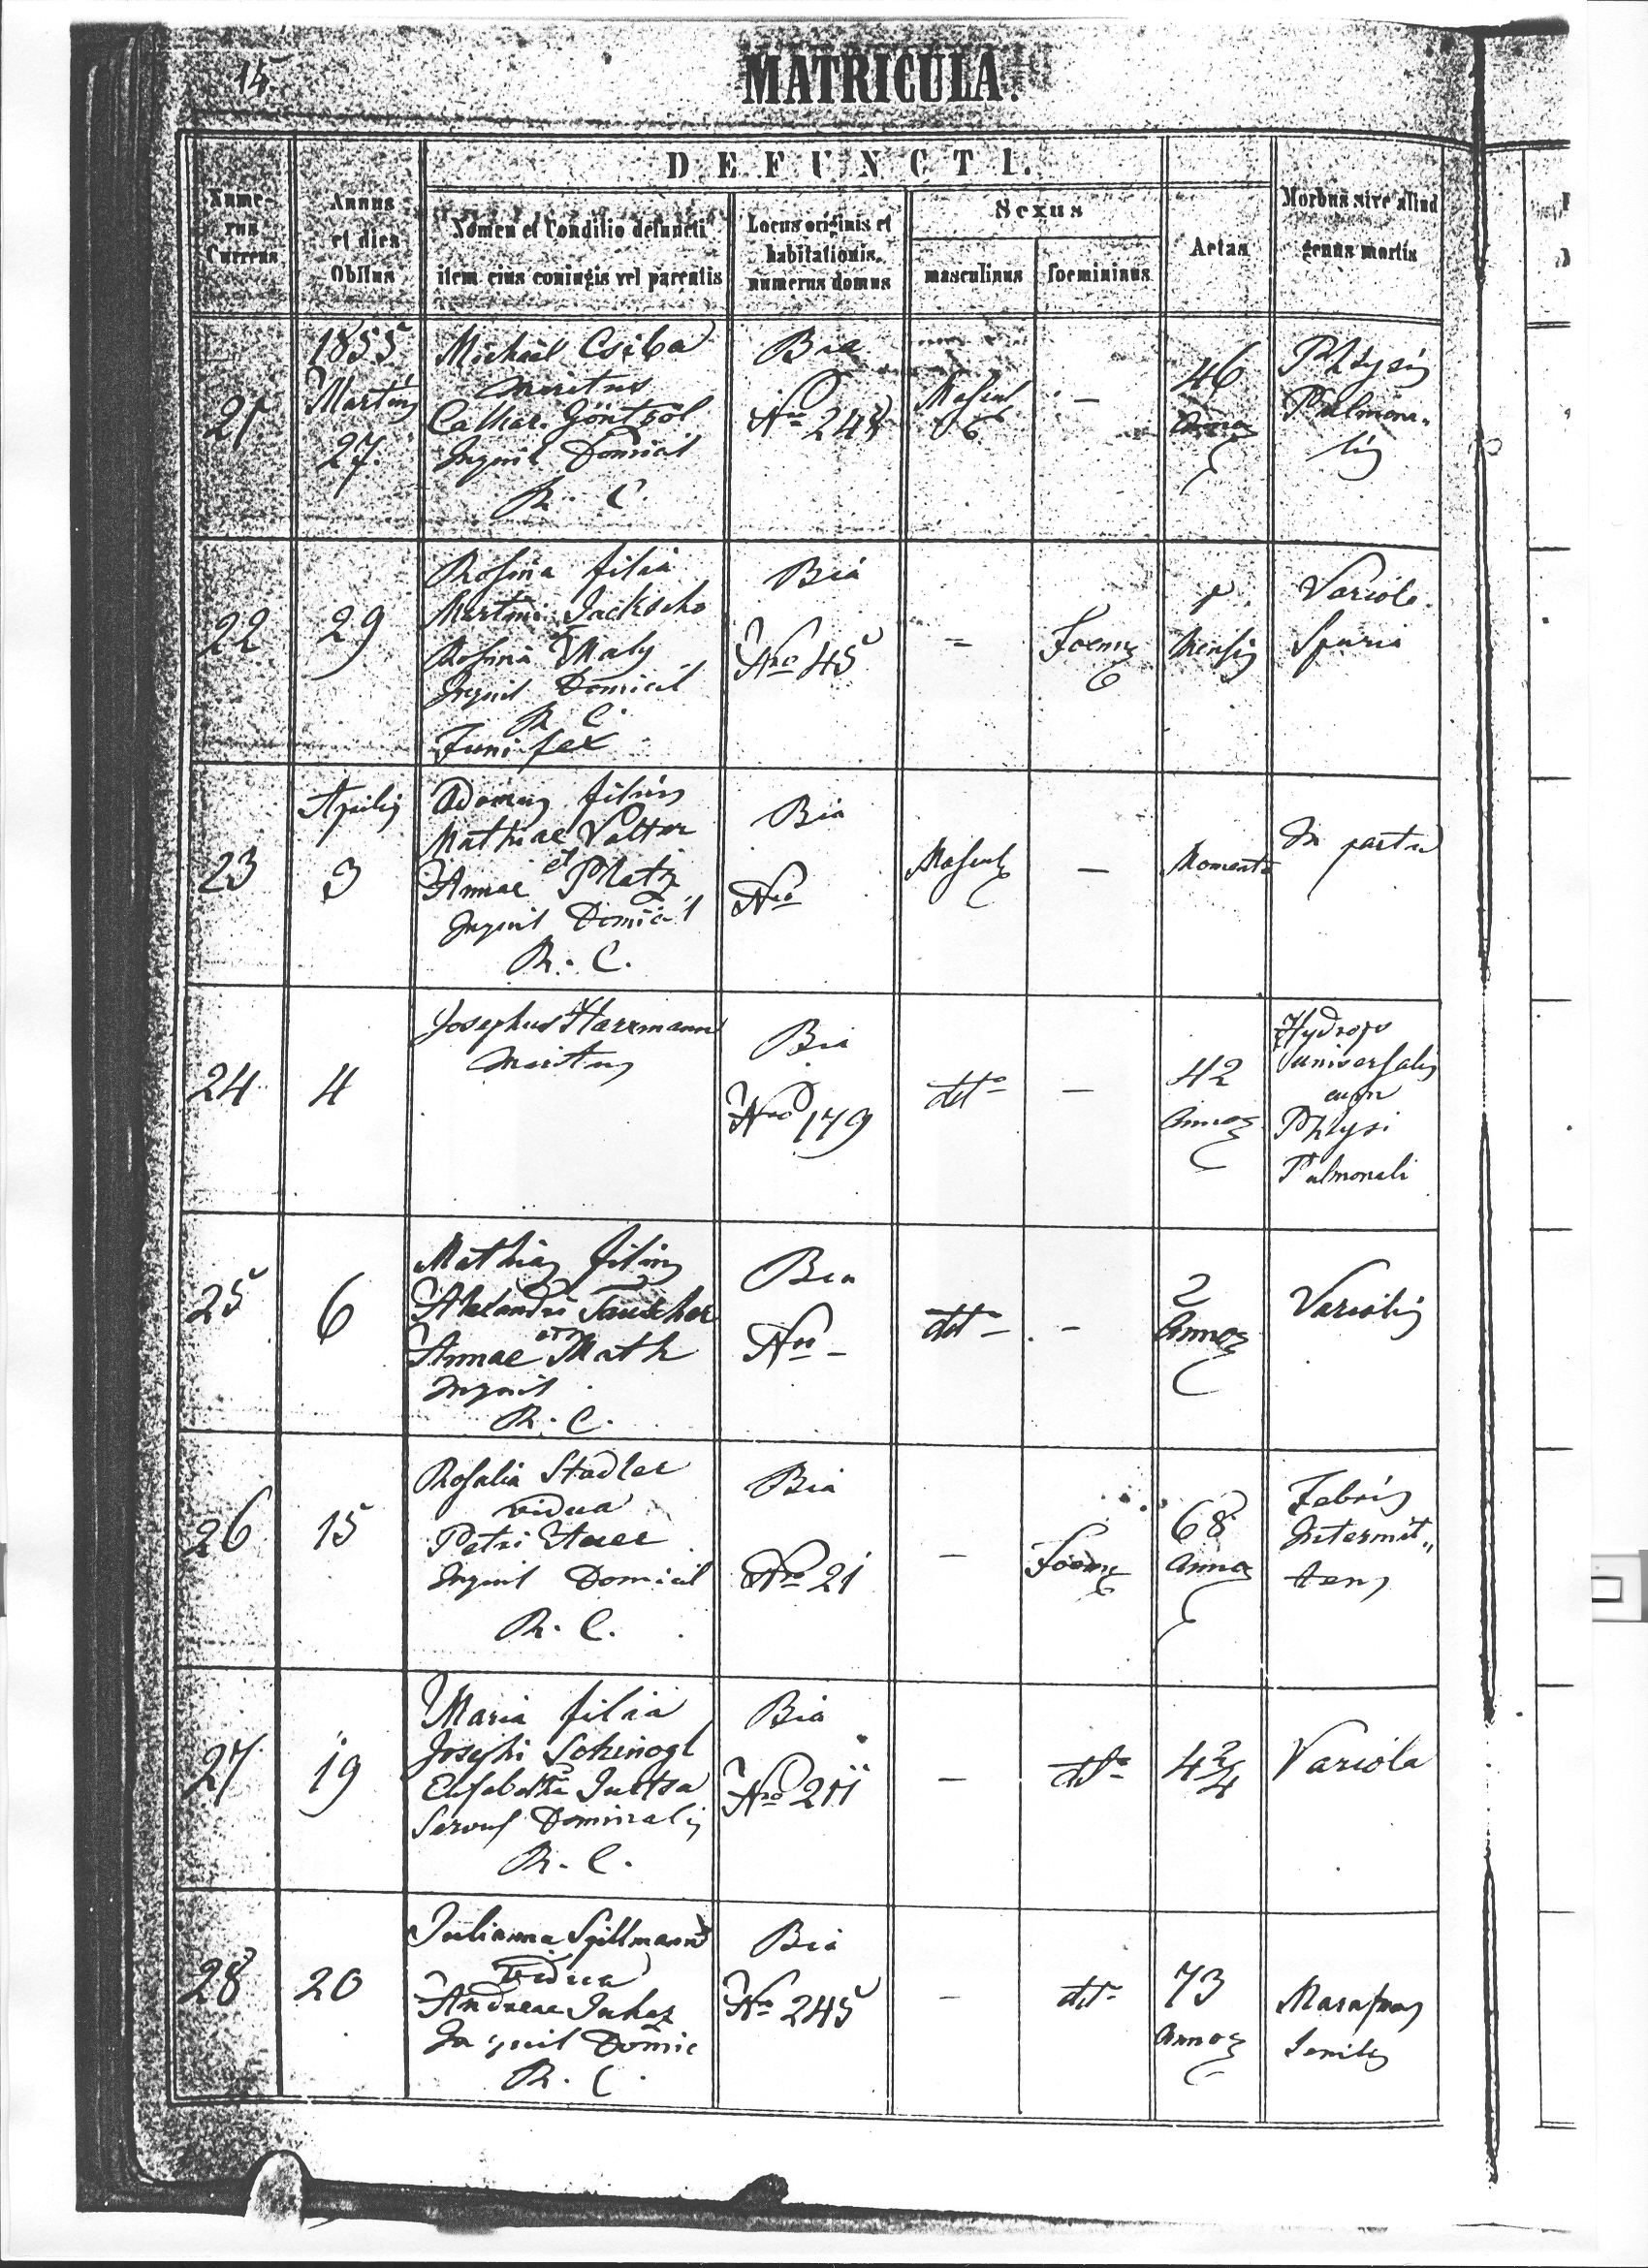 15
MATRICULA.
DEFUNCTI.
Nume-
rus
Currens
Annus
et dies
Obitus
Nomen et Conditio defuncti
item eius coniugis vel parentis
Locus originis et
habitationis,
numerus domus
Sexus
masculinus
foemininus
Aetas
Morbus sive aliud
genus mortis
21
1855
Martiy
27.
Michael Csiba
maritus
Cathar. Göntzöl
Inquil Domical
R. C.
Bia
Nro
Mascul
-
46
annor
Phtysis
Pulmona-
lis
22
29
Rosina filia
Martini
et
Rosina Maly
Inquil Domical
R C.
Funifex
Bia
Nro 45
-
Foemi
Mensis
Variola
Spuria
23
Aprilis
3
Adamus filius
Mathiae Valter
et
Annae Platz
Inquil Domical
R. C.
Bia
Nro
Mascul
-
Momento
In partu
24
4
Josephus Herrmann
maritus
Bia
Nro 179
dtto
-
42
annor
Hydrops
universalis
cum
Phtysi
Pulmonali
25
6
Mathias filius
Alexandri Tauscher
et
Annae Math
Inquil
R. C.
Bia
Nro -
dtto
-
2
Annor
Variolis
26
15
Rosalia Stadler
vidua
Petri
Inquil Domical
R. C.
Bia
Nro 21
-
Foemi
68
annor
Febris
Intermit-
tens
27
19
Maria filia
Josephi
Elisabetha Juitsa
Servus Dominalis
R. C.
Bia
Nro 211
-
dtto
4 3/4
Variola
28
20
Julianna Spillmann
Vidua
Andreae Juhaz
Inquil Domic
R. C.
Bia
No 245
-
dtto
73
annor
Marasmus
Senilis